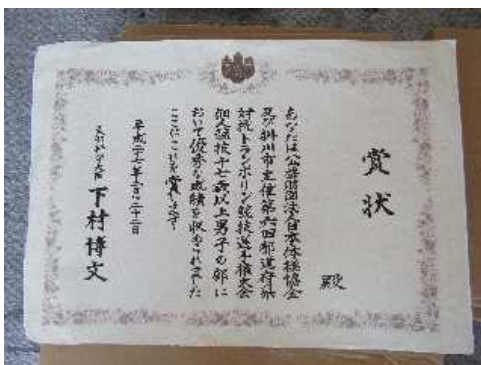 賞状
殿
あなたは公益財団法人日本体操協会
及び掛川市主催第六回都道府県
対抗トランポリン競技選手権大会
個人競技十七歳以上男子の部に
おいて優秀な成績を収められました
ここにこれを賞します
平成二十六年三月二十二日
文部科学大臣 下村博文